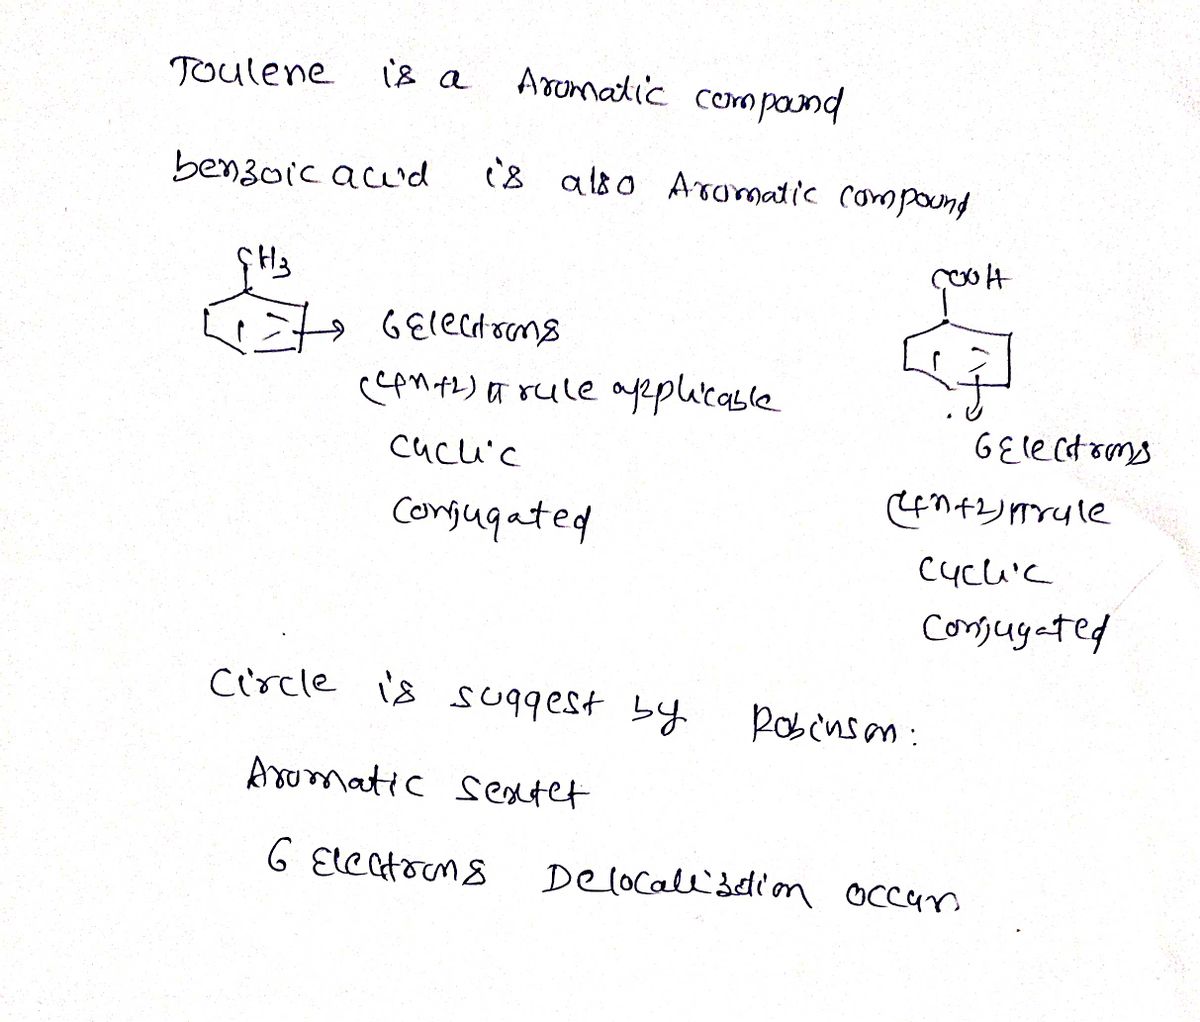 Toulene is a Aromatic compound
benzoic acid is also Aromatic compound
CH3
COOH
6 Electrons
(4n+2) π rule applicable
cyclic
conjugated
6 Electrons
(4n+2) π rule
cyclic
conjugated
Circle is suggest by Robinson:
Aromatic sextet
6 Electrons Delocalisation occurs